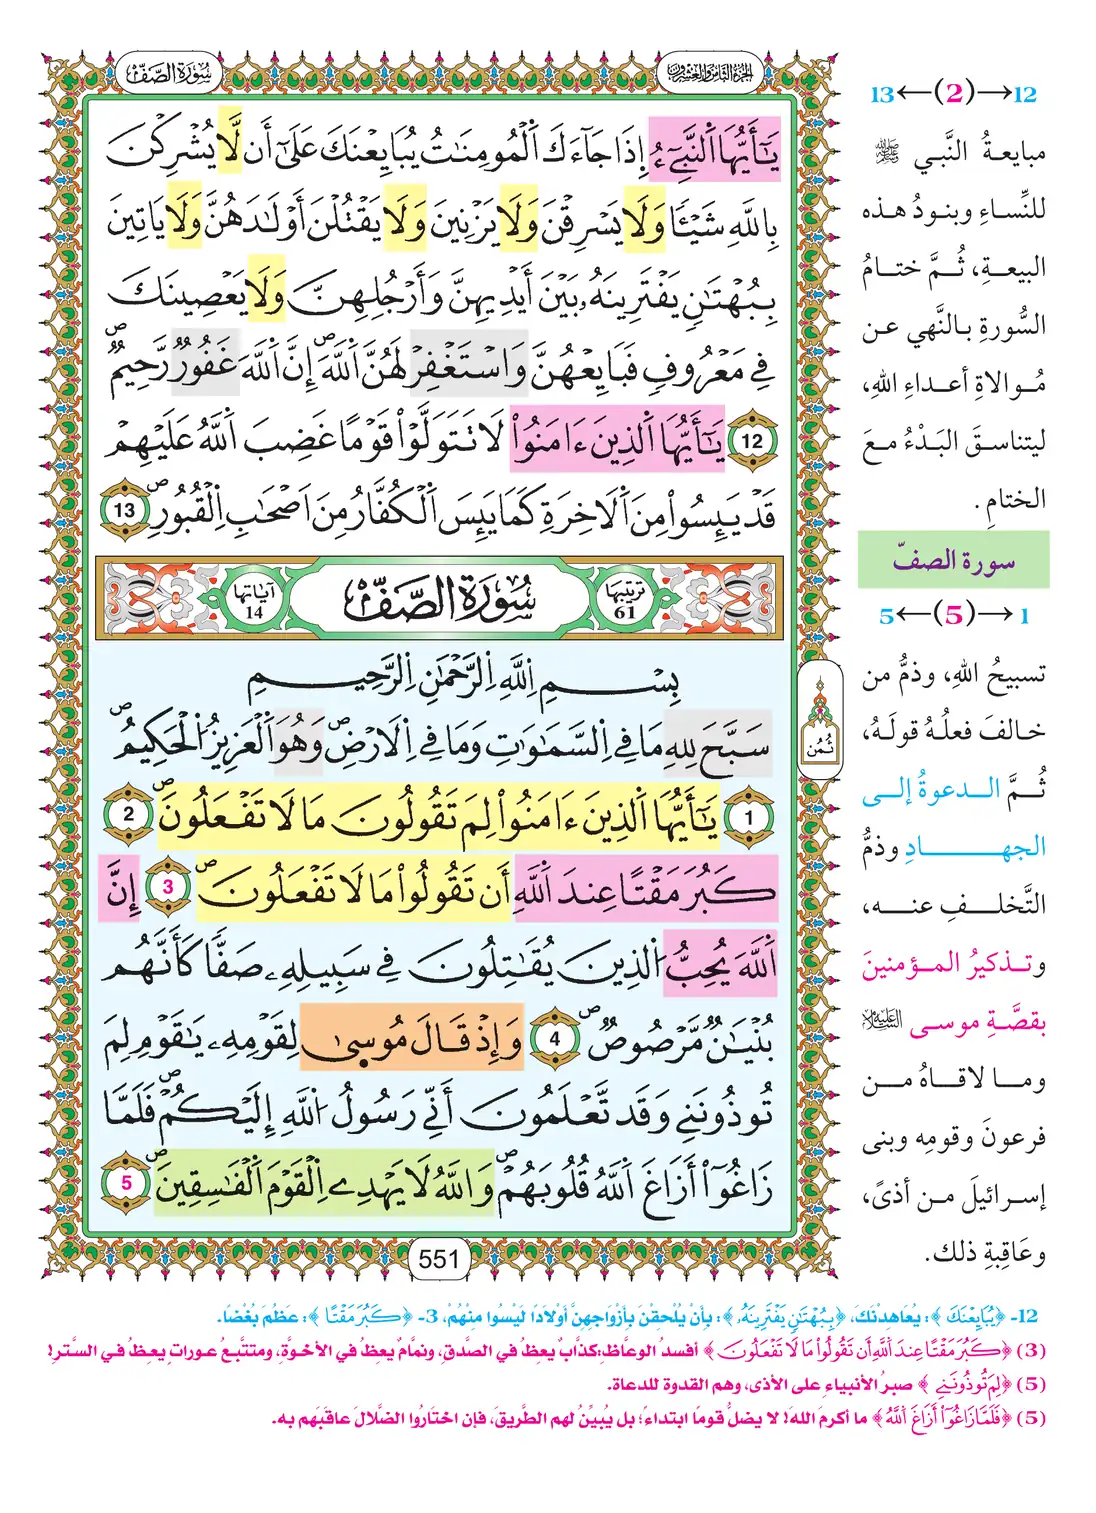 سُورَةُ الصَّفِّ
الجُزءُ الثَّامِنُ وَالعِشْرُونَ
يَٰٓأَيُّهَا اَ۬لنَّبِيٓءُ اِ۪ذَا جَآءَكَ اَ۬لْمُومِنَٰتُ يُبَايِعْنَكَ عَلَيٰٓ أَن لَّا يُشْرِكْنَ
بِاللَّهِ شَيْـٔٗا وَلَا يَسْرِقْنَ وَلَا يَزْنِينَ وَلَا يَقْتُلْنَ أَوْلَٰدَهُنَّ وَلَا يَاتِينَ
بِبُهْتَٰنٖ يَفْتَرِينَهُۥ بَيْنَ أَيْدِيهِنَّ وَأَرْجُلِهِنَّ وَلَا يَعْصِينَكَ
فِے مَعْرُوفٖ فَبَايِعْهُنَّ وَاسْتَغْفِرْ لَهُنَّ اَ۬للَّهَۖ إِنَّ اَ۬للَّهَ غَفُورٞ رَّحِيمٞۖ
12 يَٰٓأَيُّهَا اَ۬لذِينَ ءَامَنُواْ لَا تَتَوَلَّوْاْ قَوْماً غَضِبَ اَ۬للَّهُ عَلَيْهِمْ
قَدْ يَئِسُواْ مِنَ اَ۬لَاخِرَةِ كَمَا يَئِسَ اَ۬لْكُفَّارُ مِنَ اَصْحَٰبِ اِ۬لْقُبُورِۖ 13
ترتيبها 61
سُورَةُ الصَّفِّ
آياتها 14
بِسْمِ اِ۬للَّهِ اِ۬لرَّحْمَٰنِ اِ۬لرَّحِيمِ
سَبَّحَ لِلهِ مَا فِے اِ۬لسَّمَٰوَٰتِ وَمَا فِے اِ۬لَارْضِۖ وَهُوَ اَ۬لْعَزِيزُ اُ۬لْحَكِيمُۖ
1 يَٰٓأَيُّهَا اَ۬لذِينَ ءَامَنُواْ لِمَ تَقُولُونَ مَا لَا تَفْعَلُونَۖ 2
كَبُرَ مَقْتاً عِندَ اَ۬للَّهِ أَن تَقُولُواْ مَا لَا تَفْعَلُونَۖ 3 إِنَّ
اَ۬للَّهَ يُحِبُّ اُ۬لذِينَ يُقَٰتِلُونَ فِے سَبِيلِهِۦ صَفّاٗ كَأَنَّهُم
بُنْيَٰنٞ مَّرْصُوصٞۖ 4 وَإِذْ قَالَ مُوسَىٰ لِقَوْمِهِۦ يَٰقَوْمِ لِمَ
تُوذُونَنِے وَقَد تَّعْلَمُونَ أَنِّے رَسُولُ اُ۬للَّهِ إِلَيْكُمْۖ فَلَمَّا
زَاغُوٓاْ أَزَاغَ اَ۬للَّهُ قُلُوبَهُمْۖ وَاللَّهُ لَا يَهْدِے اِ۬لْقَوْمَ اَ۬لْفَٰسِقِينَۖ 5
ثُمُن
551
12→(2)←13
مبايعةُ النَّبي ﷺ
للنِّساءِ وبنودُ هذه
البيعةِ، ثُمَّ ختامُ
السُّورةِ بالنَّهي عن
مُوالاةِ أعداءِ اللهِ،
ليتناسقَ البَدْءُ معَ
الختامِ.
سورة الصفّ
1→(5)←5
تسبيحُ اللهِ، وذمُّ من
خالفَ فعلُهُ قولَهُ،
ثُمَّ الدعوةُ إلى
الجهادِ وذمُّ
التَّخلفِ عنه،
وتذكيرُ المؤمنينَ
بقصَّةِ موسى عليه السلام
وما لاقاهُ من
فرعونَ وقومِه وبنى
إسرائيلَ من أذىً،
وعَاقِبةِ ذلك.
12- ﴿يُبَايِعْنَكَ﴾: يُعَاهِدْنَكَ، ﴿بِبُهْتَٰنٖ يَفْتَرِينَهُۥ﴾: بِأنْ يُلْحِقْنَ بِأزْوَاجِهِنَّ أوْلَادًا لَيْسُوا مِنْهُمْ، 3- ﴿كَبُرَ مَقْتاً﴾: عَظُمَ بُغْضًا.
(3) ﴿كَبُرَ مَقْتاً عِندَ اَ۬للَّهِ أَن تَقُولُواْ مَا لَا تَفْعَلُونَ﴾ أفسدُ الوعاظِ:كذَّاب يعظُ في الصدقِ، ونمَّامٌ يعظُ في الأخوَّةِ، ومتتبعُ عوراتٍ يعظُ في السَّترِ!
(5) ﴿لِمَ تُوذُونَنِے﴾ صبرُ الأنبياءِ على الأذى، وهم القدوة للدعاة.
(5) ﴿فَلَمَّا زَاغُوٓاْ أَزَاغَ اَ۬للَّهُ﴾ ما أكرمَ اللهَ! لا يضلُّ قومًا ابتداءً؛ بل يُبيِّنُ لهم الطَّريقَ، فإن اختَارُوا الضَّلالَ عاقَبَهم به.